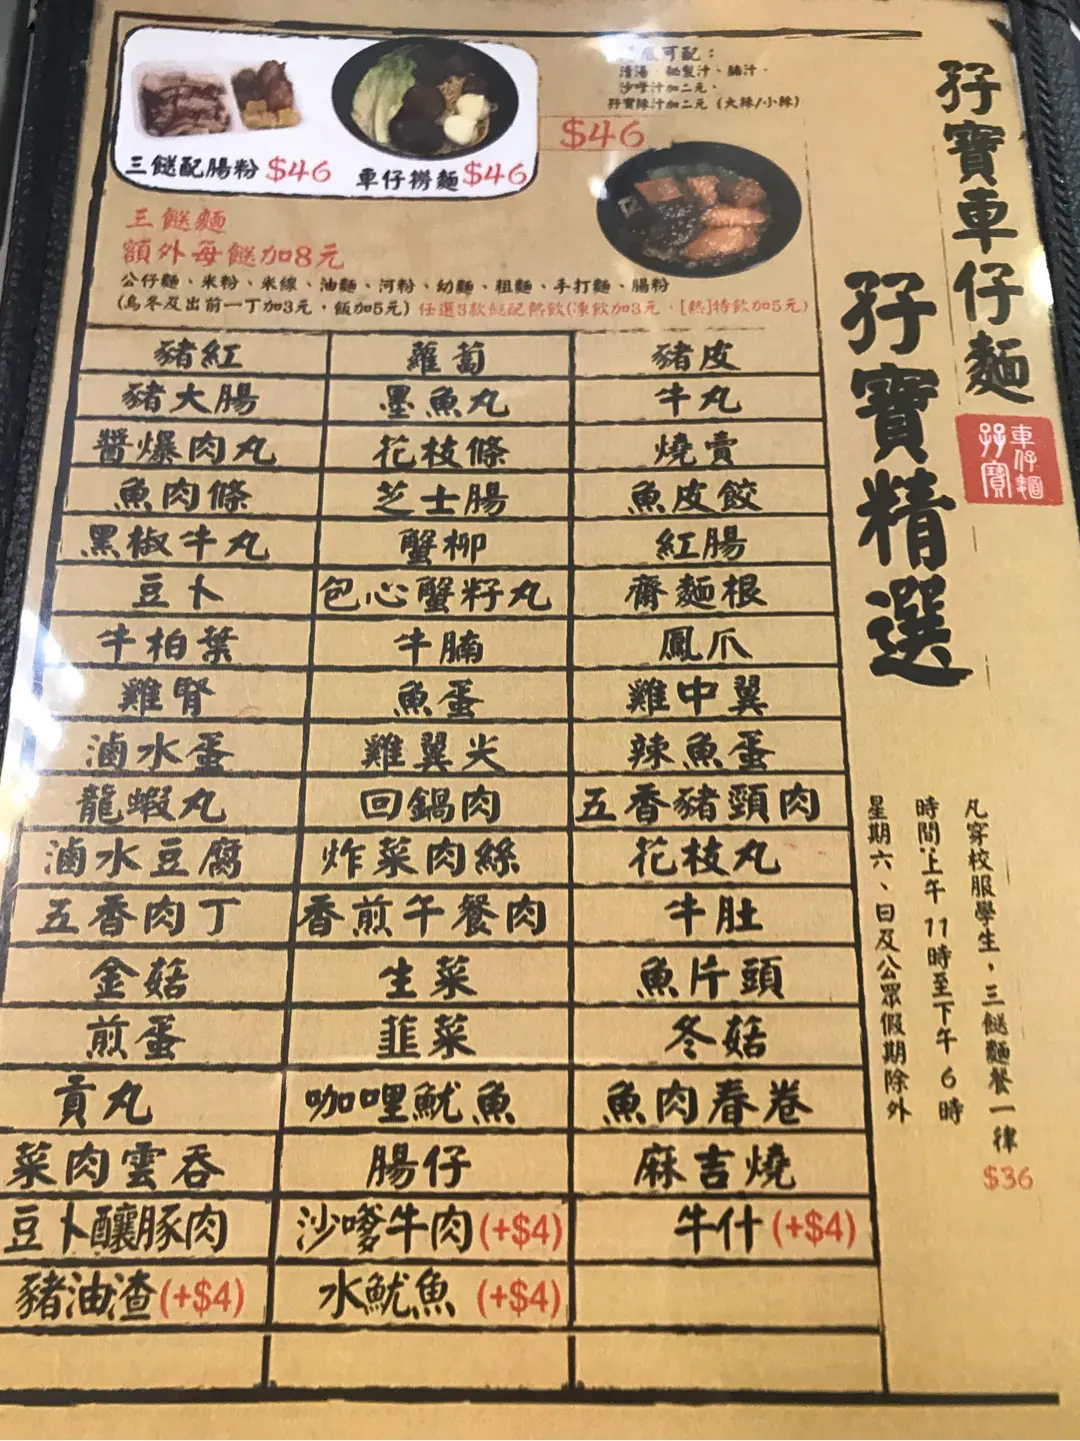 孖寶車仔麵
孖寶精選
車仔麵
孖寶
三餸配腸粉 $46
車仔撈麵 $46
可配：
清湯、秘製汁、腩汁、
沙嗲汁加二元、
孖寶辣汁加二元 (大辣/小辣)
$46
三餸麵
額外每餸加8元
公仔麵、米粉、米線、油麵、河粉、幼麵、粗麵、手打麵、腸粉
(烏冬及出前一丁加3元，飯加5元) 任選3款餸配熱飲(凍飲加3元，[熱]特飲加5元)
豬紅 蘿蔔 豬皮
豬大腸 墨魚丸 牛丸
醬爆肉丸 花枝條 燒賣
魚肉條 芝士腸 魚皮餃
黑椒牛丸 蟹柳 紅腸
豆卜 包心蟹籽丸 齋麵根
牛柏葉 牛腩 鳳爪
雞腎 魚蛋 雞中翼
滷水蛋 雞翼尖 辣魚蛋
龍蝦丸 回鍋肉 五香豬頸肉
滷水豆腐 炸菜肉絲 花枝丸
五香肉丁 香煎午餐肉 牛肚
金菇 生菜 魚片頭
煎蛋 韮菜 冬菇
貢丸 咖哩魷魚 魚肉春卷
菜肉雲吞 腸仔 麻吉燒
豆卜釀豚肉 沙嗲牛肉(+$4) 牛什(+$4)
豬油渣(+$4) 水魷魚 (+$4)
凡穿校服學生，三餸麵餐一律 $36
時間：上午 11 時至下午 6 時
星期六、日及公眾假期除外